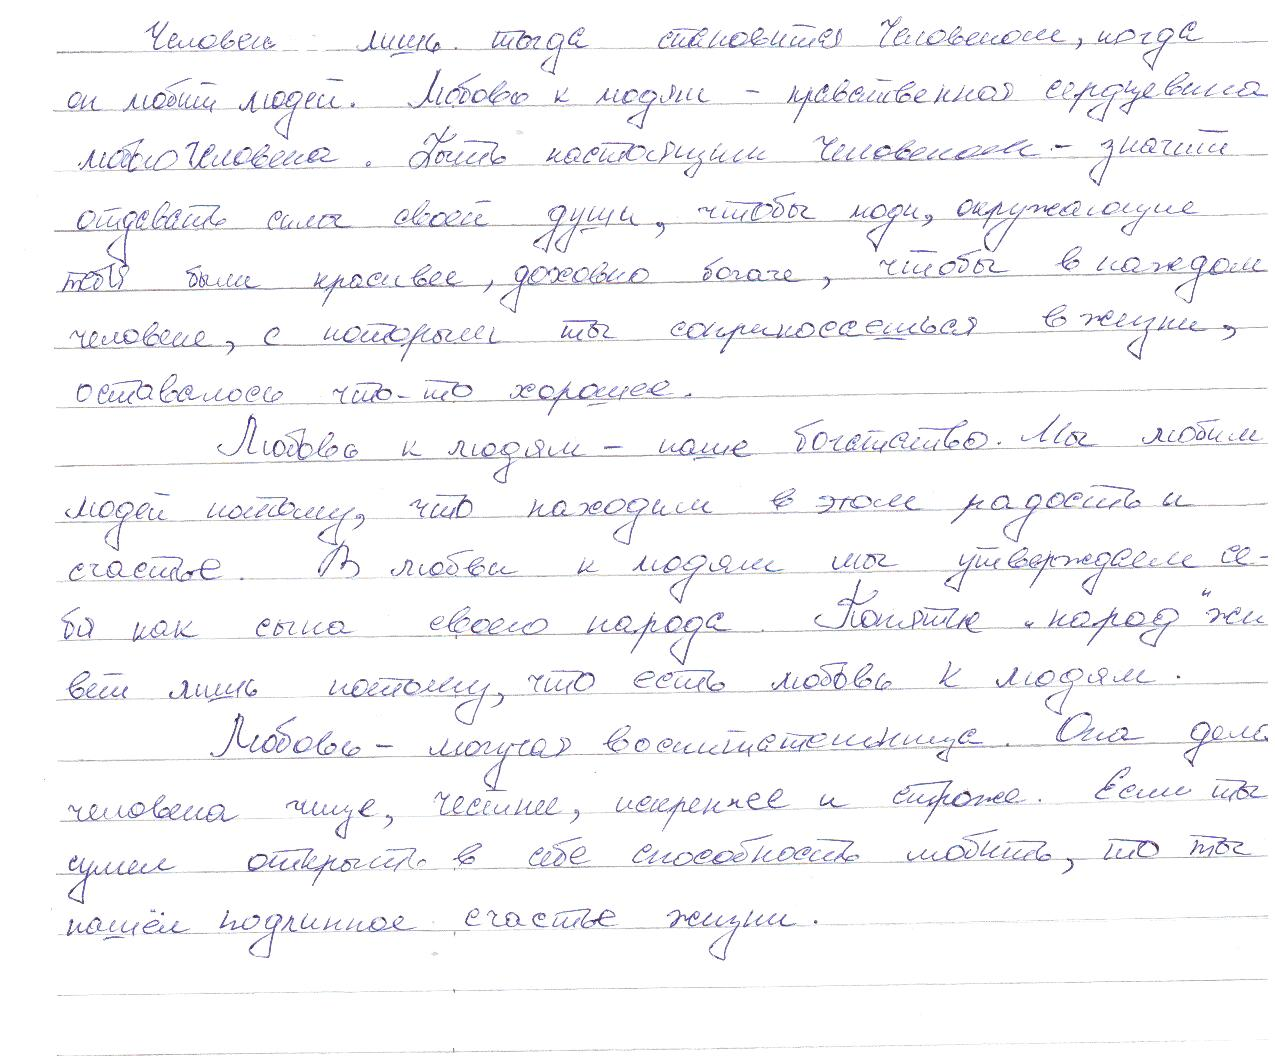 Человек лишь тогда становится Человеком, когда
он любит людей. Любовь к людям – нравственная сердцевина
любого Человека. Быть настоящим Человеком – значит
отдавать силы своей души, чтобы люди, окружающие
тебя были красивее, духовно богаче, чтобы в каждом
человеке, с которым ты соприкоссаешься в жизни,
оставалось что-то хорошее.
Любовь к людям – наше богатство. Мы любим
людей потому, что находим в этом радость и
счастье. В любви к людям мы утверждаем се-
бя как сына своего народа. Понятие „народ" жи
вет лишь потому, что есть любовь к людям.
Любовь – могучая воспитательница. Она дела
человека чище, честнее, искреннее и строже. Если ты
сумел открыть в себе способность любить, то ты
нашёл подлинное счастье жизни.